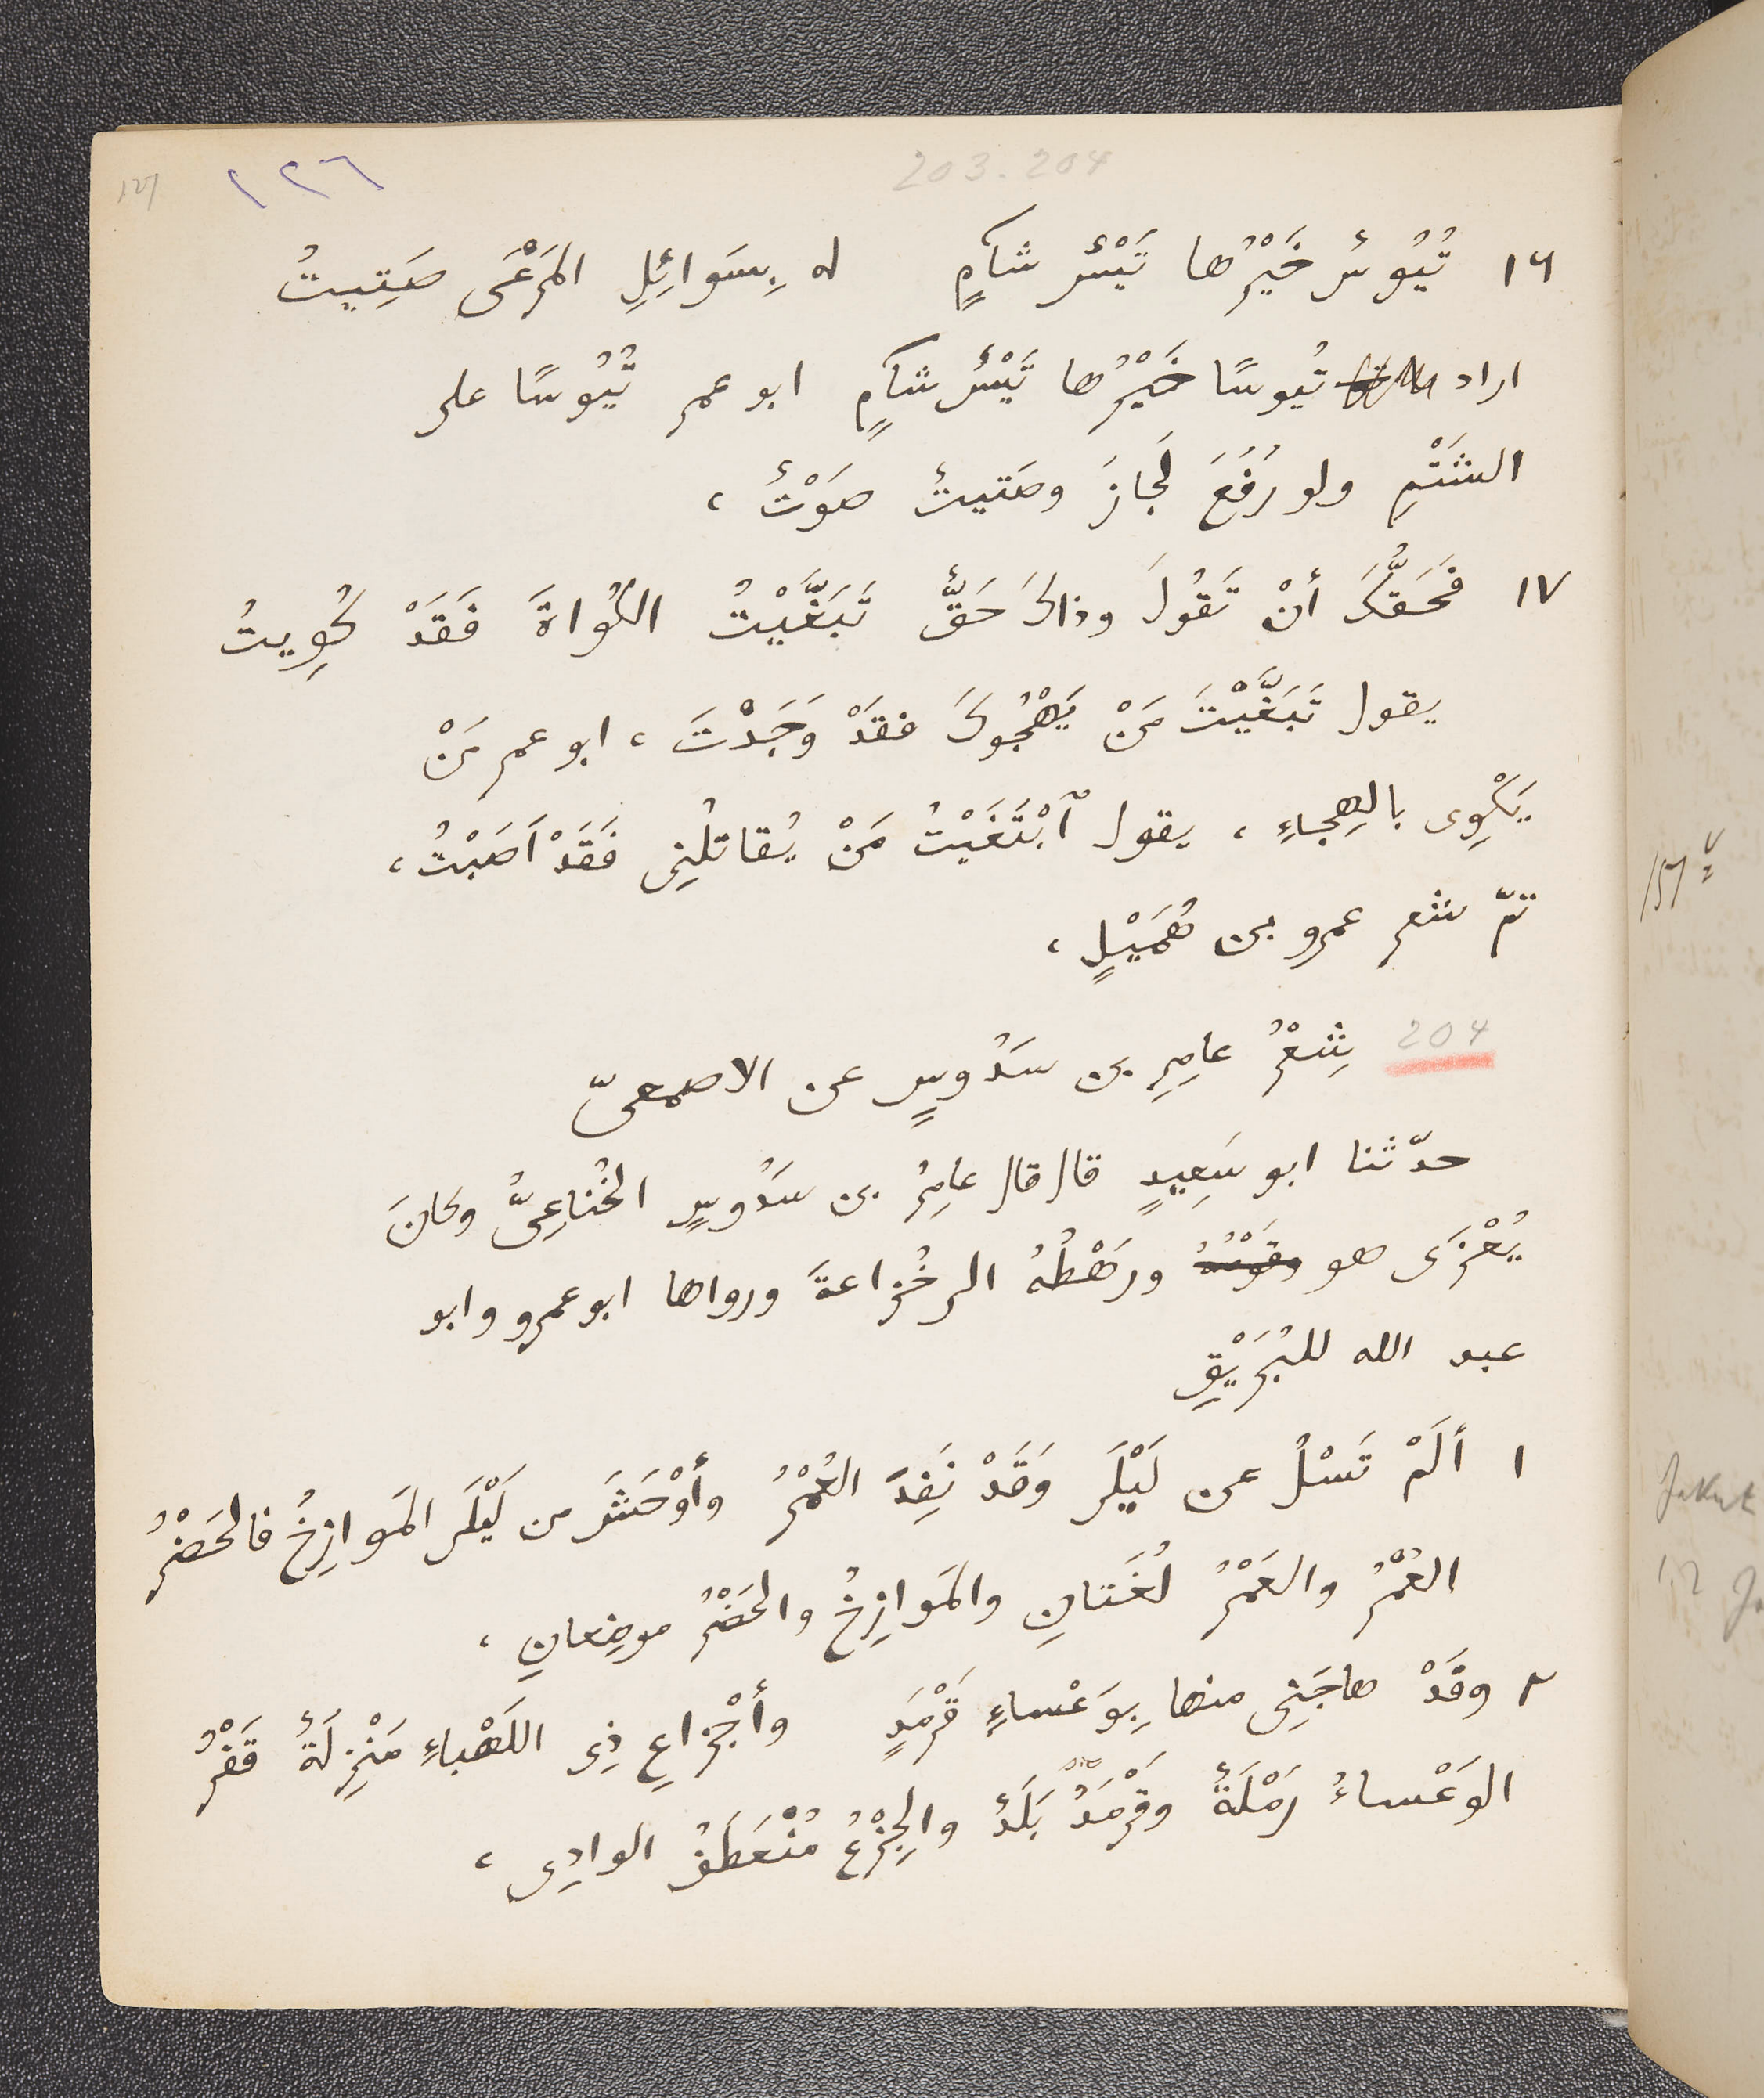 203.204
١٢٦
127
١٦ تُيُوسٌ خَيْرُها تَيْسٌ شآمٍ له بِسَوائِلِ المَرْعَى صَتِيتُ
اراد تُيُوسًا خَيْرُها تَيْسٌ شآمٍ ابو عمر تُيُوسًا على
الشَتْمِ ولو رُفِعَ لَجازَ وصَتيتٌ صَوْتٌ ،
١٧ فَحَقُّكَ أنْ تَقُولَ وذاكَ حَقٌّ تَبَغَّيْتُ الكُواةَ فَقَدْ كُوِيتُ
يقول تَبَغَّيْتَ مَنْ يَهْجُوكَ فقَدْ وَجَدْتَ ، ابو عمر مَنْ
يَكْوِى بالهِجاءِ ، يقول ٱبْتَغَيْتُ مَنْ يُقاتلُنِى فَقَدْ اَصَبْتُ ،
تمّ شعر عمرو بن هُمَيْلٍ ،
204 شِعْرُ عامِرِ بن سَدُوسٍ عن الاصمعىّ
حدّثنا ابو سَعِيدٍ قال قال عامِرُ بن سَدُوسٍ الخُناعِىُّ وكانَ
يُعْزَى هو وقَوْمُهُ ورَهْطُهُ الى خُزاعةَ ورواها ابو عمرو وابو
عبد الله للبُرَيْقِ
١ ألَمْ تَسْلُ عن لَيْلَى وَقَدْ نَفِدَ العُمْرُ وأوْحَشَ من لَيْلَى المَوازِخُ فالحَضْرُ
العُمْرُ والعَمْرُ لُغَتانِ والمَوازِخُ والحَضْرُ موضِعانِ ،
٢ وقَدْ هاجَنِى منها بِوَعْساءِ قَرْمَدٍ وأجْزاعِ ذِى اللَهْباءِ مَنْزِلَةٌ قَفْرُ
الوَعْساءُ رَمْلَةٌ وقَرْمَدُ بَلَدٌ والجِزْعُ مُنْعَطَفُ الوادِى ،
157
Jakut